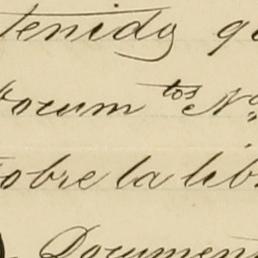 tenido q
Docum tos No
sobre la lib
Document